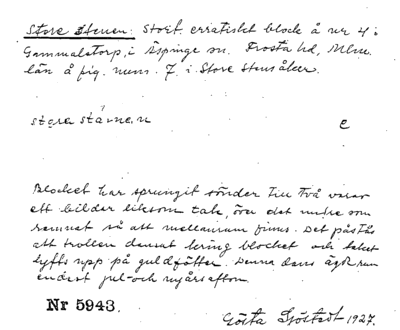 Store stenen: stort erratiskt block å nr 4 i
Gammalstorp, i Äspinge sn. Frosta hd, Malm.
län å fig. num. 7. i Store Stensåker.
stọra stá-nẹn e
Blocket har sprungit sönder till två varav
ett bildar liksom tak, över det nedre som
remnat så att mellanrum finns. Det påstås
att trollen dansat kring blocket och taket
lyfts upp på guldfötter. Denna dans ägde rum
endast jul- och nyårsafton.
Nr 5943.
Gösta Sjöstedt 1927.